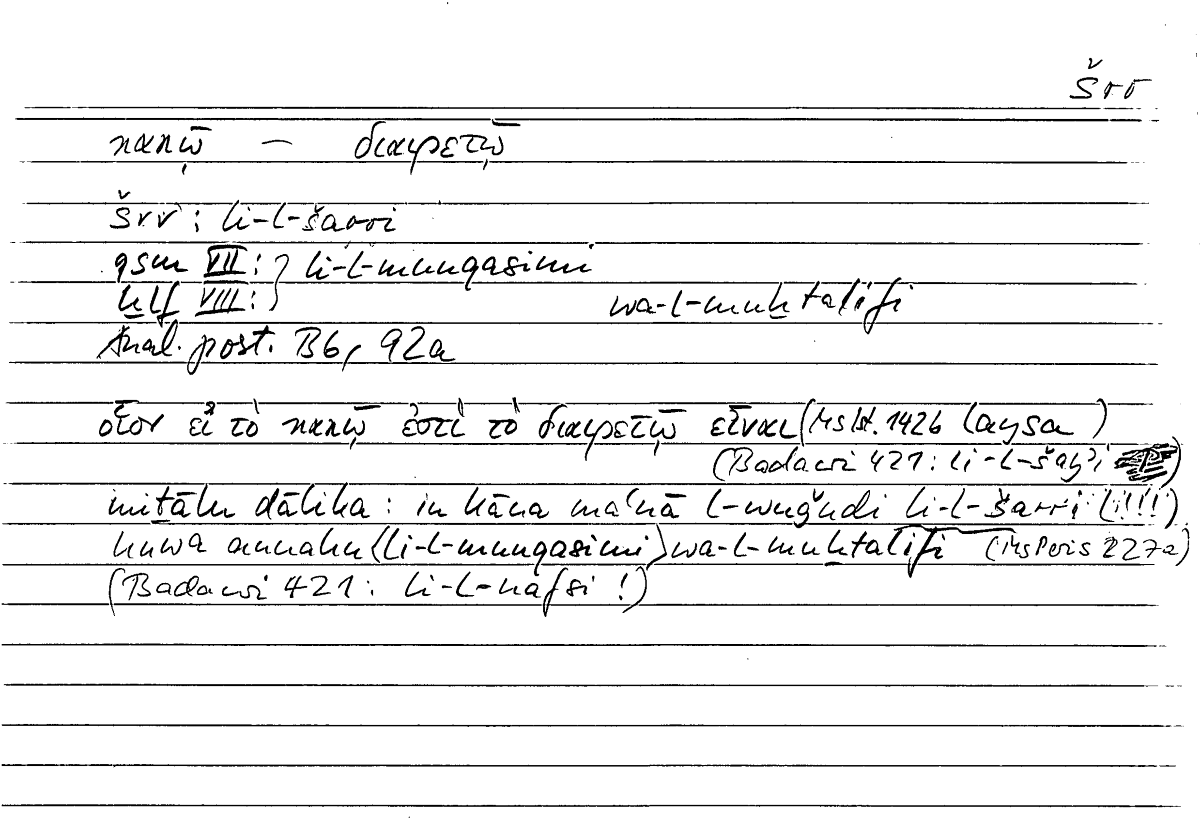 šrr
κακῷ — διαιρετῷ
šrr : li-l-šarri
qsm VII : } li-l-munqasimi
ḫlf VIII : } wa-l-muḫtalifi
Anal. post. B6, 92a
οἷον εἰ τὸ κακῷ ἐστὶ τὸ διαιρετῷ εἶναι (Ms Ist. 142b laysa )
(Badawi 421 : li-l-šayʾi )
miṯālu ḏālika : in kāna maʿnā l-wuǧūdi li-l-šarri (!!!!)
huwa annahu ⟨li-l-munqasimi⟩ wa-l-muḫtalifi (Ms Paris 227a)
(Badawi 421 : li-l-nafsi !)